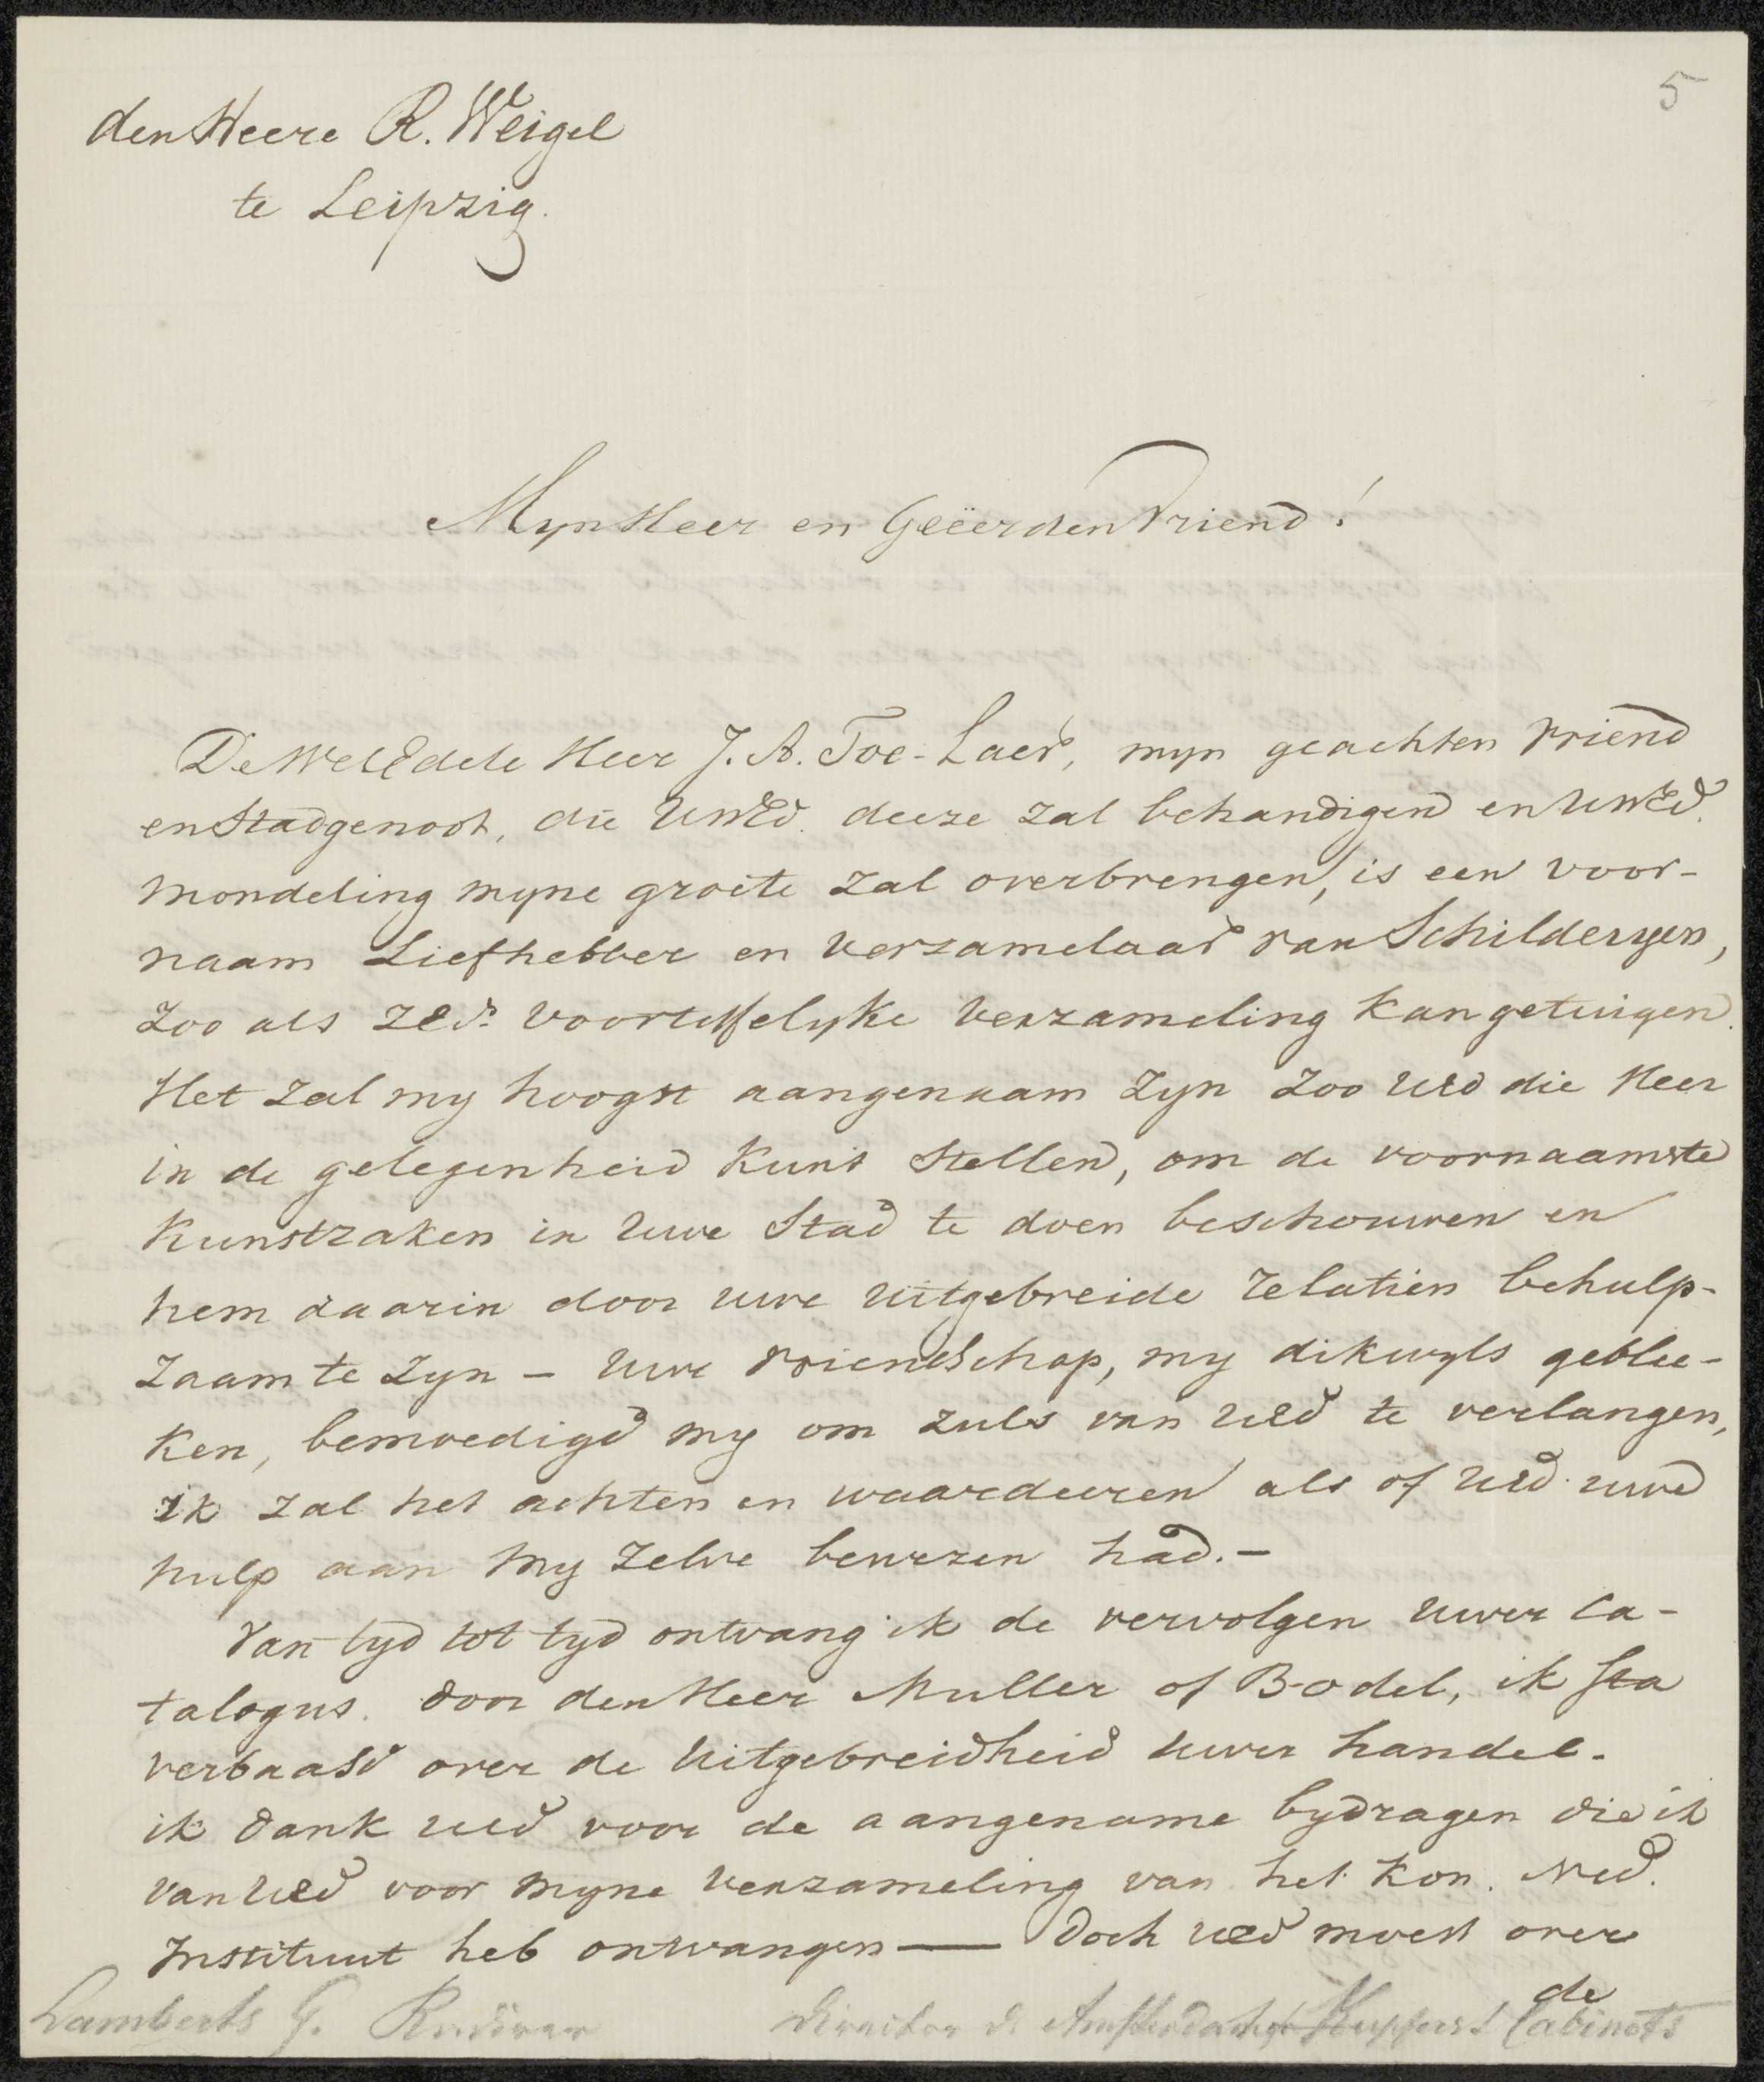 5
den Heere R. Weigel
te Leipzig.
Myn Heer en Geëerden Vriend!
De WelEdele Heer J. A. Toe-Laer, myn geachten vriend
en Stadgenoot, die UwEd. deeze zal behandigen en UwEd.
mondeling myne groete zal overbrengen, is een voor-
naam Liefhebber en verzamelaar van Schilderyen,
zoo als zEds. voortefflelyke verzameling kan getuigen.
Het zal my hoogst aangenaam zyn zoo UEd die Heer
in de gelegenheid kunt stellen, om de voornaamste
kunstzaken in uwe Stad te doen beschouwen en
hem daarin door uwe uitgebreide relatien behulp-
zaam te zyn - uwe vriendschap, my dikwyls geblee-
ken, bemoedigd my om zulks van UEd te verlangen,
ik zal het achten en waardeeren als of UEd. uwe
hulp aan my zelve bewezen had.-
Van tyd tot tyd ontvang ik de vervolgen uwer Ca-
talogus. door den Heer Muller of Bodel, ik sta
verbaasd over de uitgebreidheid uwer handel.
ik dank UEd voor de aangename bydragen die ik
van UEd voor myne verzameling van het Kon. Ned.
Instituut heb ontvangen — doch UEd moest over
de
Lamberts G. Director d. Amsterdamer Kupferst Cabinets